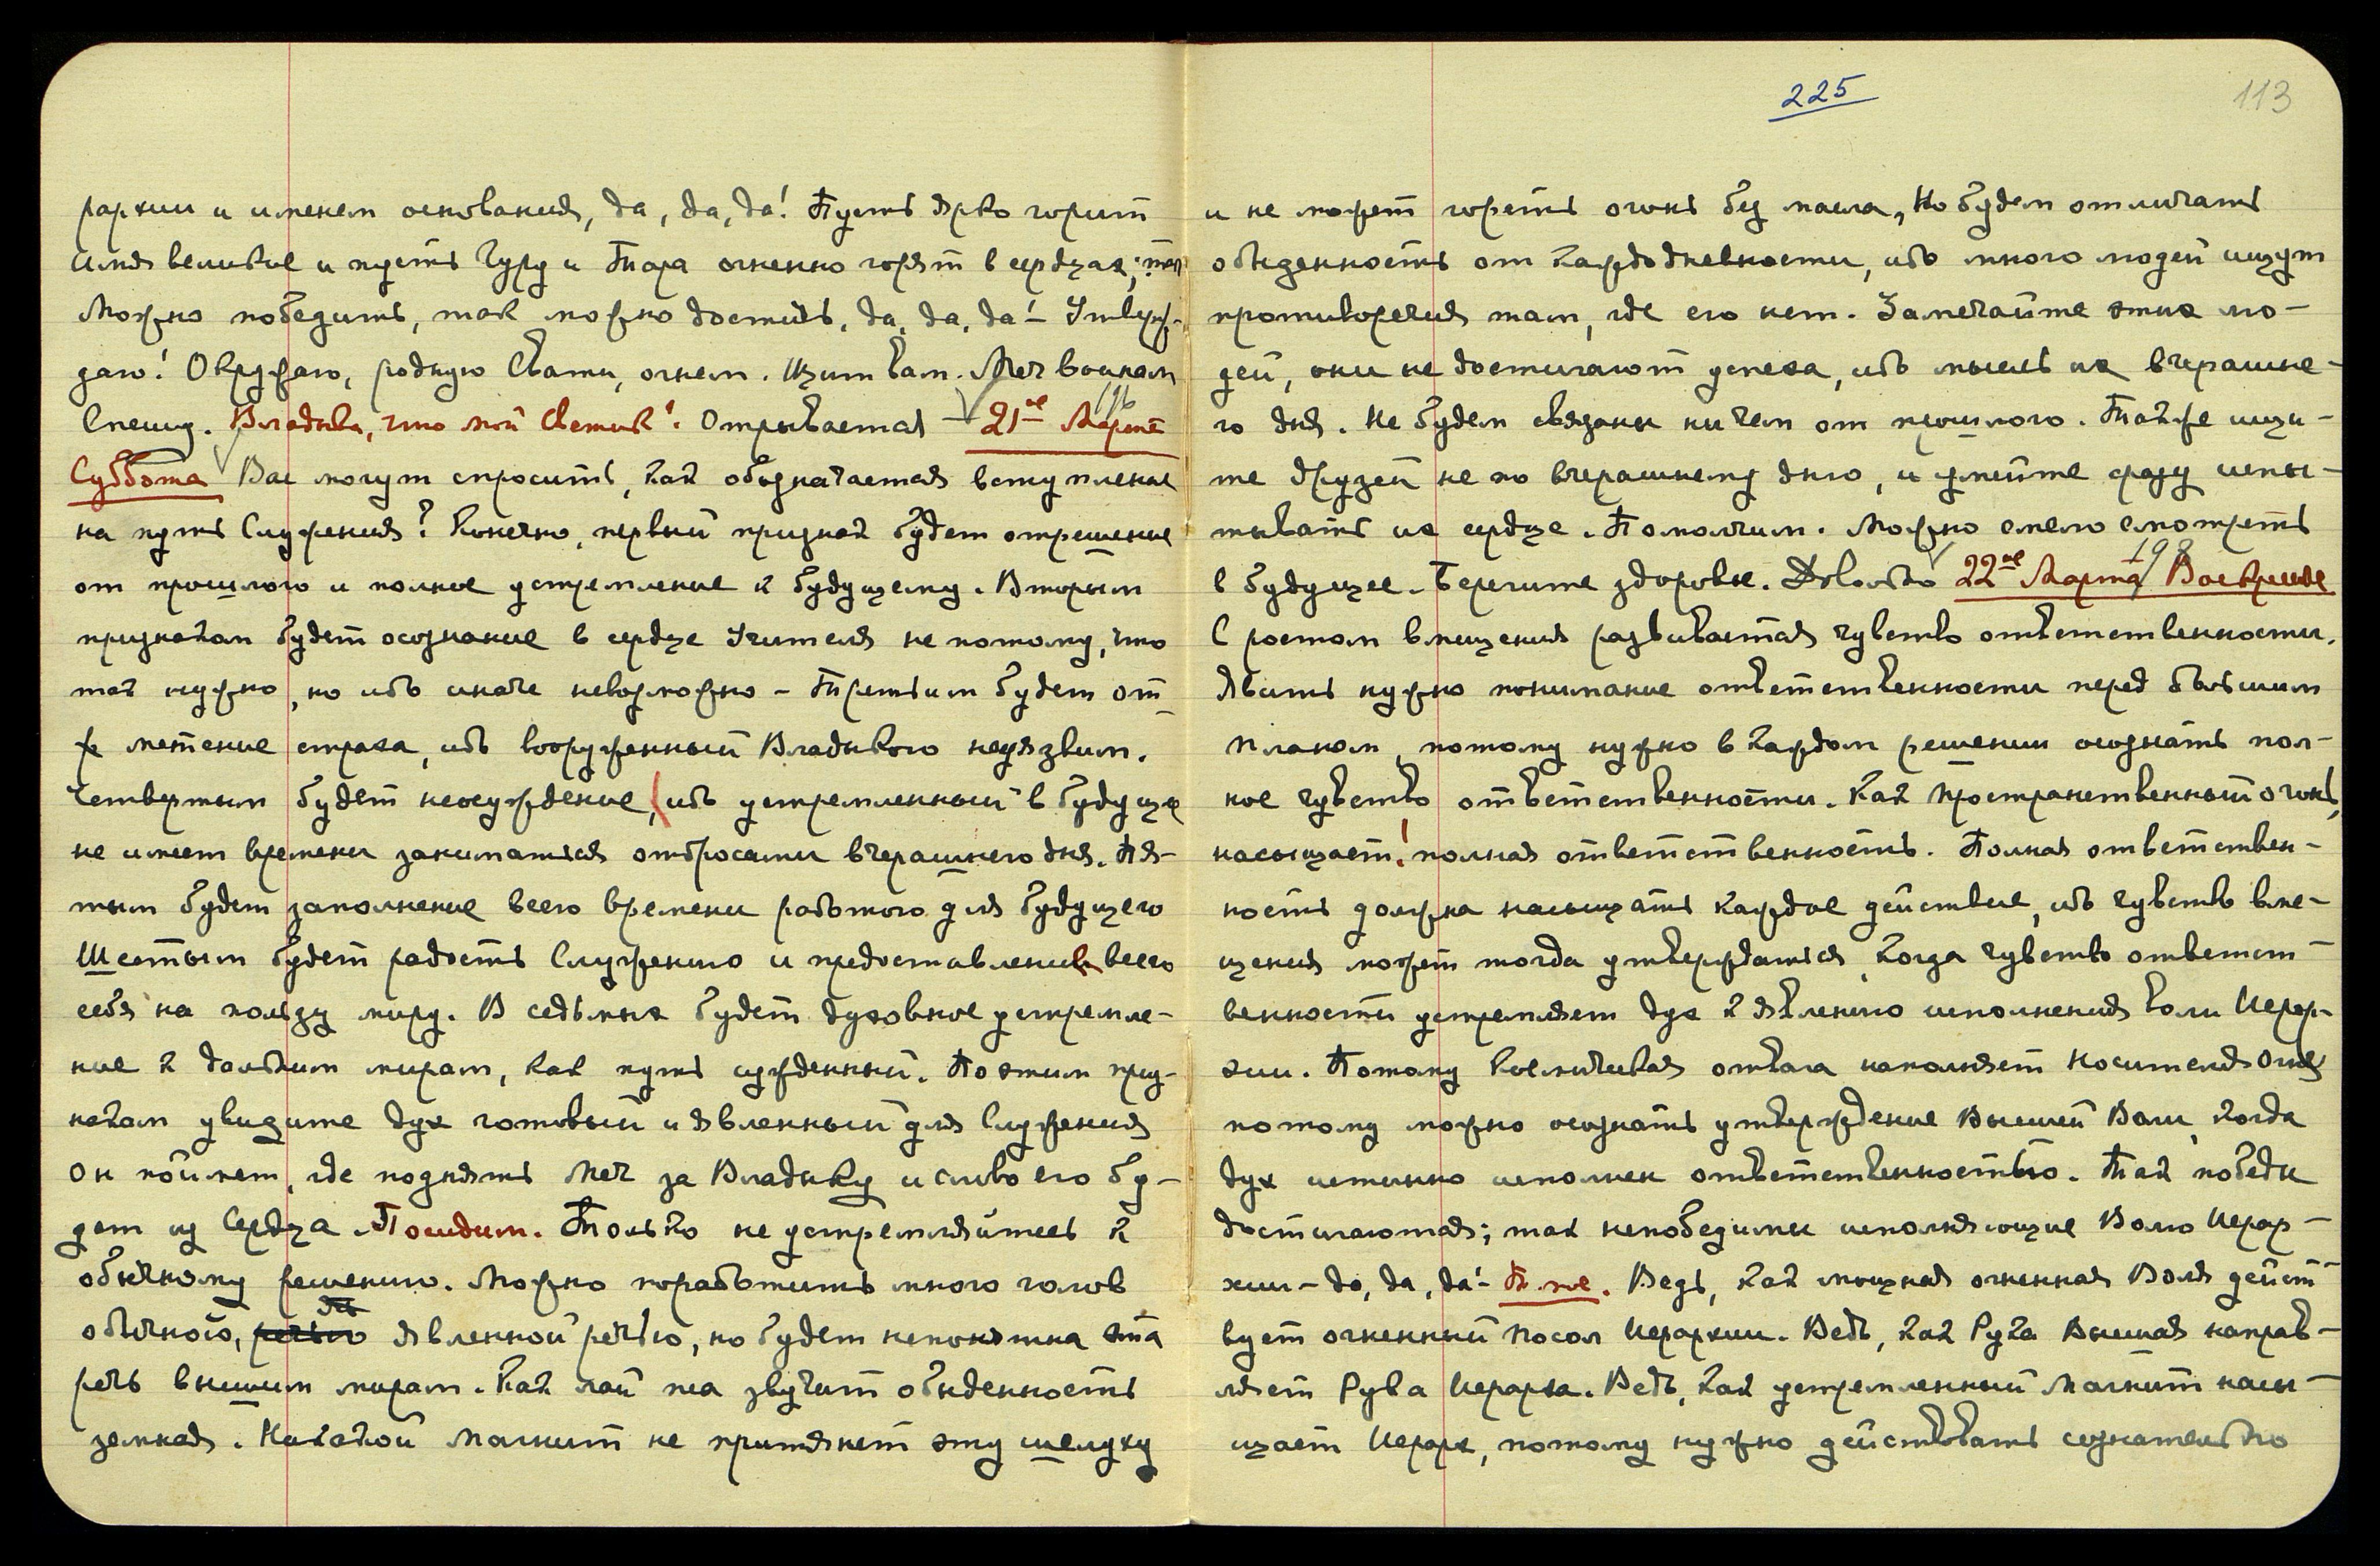 рархии и именем основания, да, да, да! Пусть ярко горит
Имя великое и пусть Гуру и Тара огненно горят в сердцах; так
можно победить, так можно достичь, да, да, да! – Утверж-
даю! Окружаю, родную Свати, огнем. Щит вам. Меч воинам
Спешу. Владыка, что мой Светик? Отрывается – 21ое Марта 196
Суббота Вас могут спросить, как обозначается вступление
на путь Служения? Конечно, первый признак будет отрешение
от прошлого и полное устремление к будущему. Вторым
признаком будет осознание в сердце Учителя не потому, что
так нужно, но ибо иначе невозможно – Третьим будет от-
метение страха, ибо вооруженный Владыкою неуязвим.
Четвертым будет неосуждение, ибо устремленный в будущее
не имеет времени заниматься отбросами вчерашнего дня. Пя-
тым будет заполнение всего времени работою для будущего
Шестым будет радость Служению и предоставление всего
себя на пользу миру. В седьмых будет духовное устремле-
ние к дальним мирам, как путь сужденный. По этим приз-
накам увидите дух готовый и явленный для Служения
Он поймет, где поднять меч за Владыку и слово его бу-
дет из Сердца. Посидим. Только не устремляйтесь к
обычному решению. Можно поработить много голов
обычною, речью явленной речью, но будет непонятна эта
речь высшим мирам. Как лай пса звучит обыденность
земная. Никакой магнит не притянет эту шелуху
225
113
и не может гореть огонь без масла, Но будем отличать
обыденность от каждодневности, ибо много людей ищут
противоречия там, где его нет. Замечайте этих лю-
дей, они не достигают успеха, ибо мысль их вчерашне-
го дня. Не будем связаны ничем от прошлого. Также ищи-
те друзей не по вчерашнему дню, и умейте сразу испы-
тывать их сердце. Помолчим. Можно смело смотреть
в будущее. Берегите здоровье. Довольно 22ое Марта 198 Воскресье
С ростом вмещения развивается чувство ответственности.
Явить нужно понимание ответственности перед большим
планом, потому нужно в каждом решении осознать пол-
ное чувство ответственности. Как пространственный огонь,
насыщает! полная ответственность. Полная ответствен-
ность должна насыщать каждое действие, ибо чувство вме-
щения может тогда утверждаться, когда чувство ответст-
венности устремляет дух к явлению исполнения воли Иерар-
хии. Потому космическая отвага наполняет Носителя Огня
потому можно осознать утверждение Высшей Воли, когда
дух истинно исполнен ответственностью. Так победы
достигаются; так непобедимы исполняющие Волю Иерар-
хии – да, да, да! – Ведь, как мощная огненная Воля дейст-
вует огненный посол Иерархии. Ведь, как Рука Высшая направ-
ляет Рука Иерарха. Ведь, как устремленный Магнит насы-
щает Иерарх, потому нужно действовать сознательно